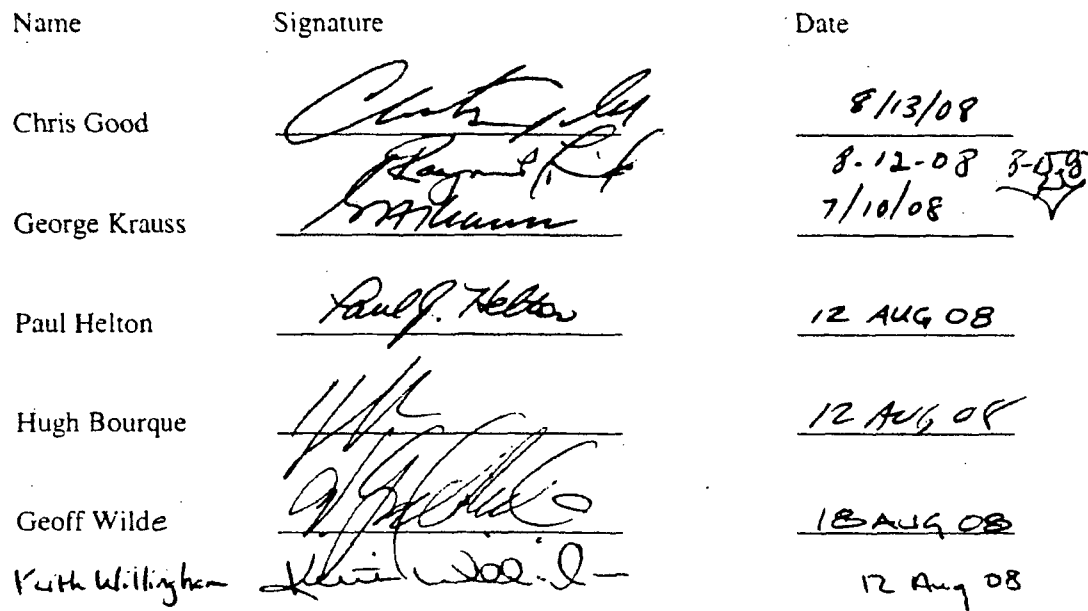 Name Signature Date
Chris Good 8/13/08
8-12-08
George Krauss 7/10/08
Paul Helton Paul J. Helton 12 AUG 08
Hugh Bourque 12 AUG 08
Geoff Wilde 18 AUG 08
Keith Willingham 12 Aug 08